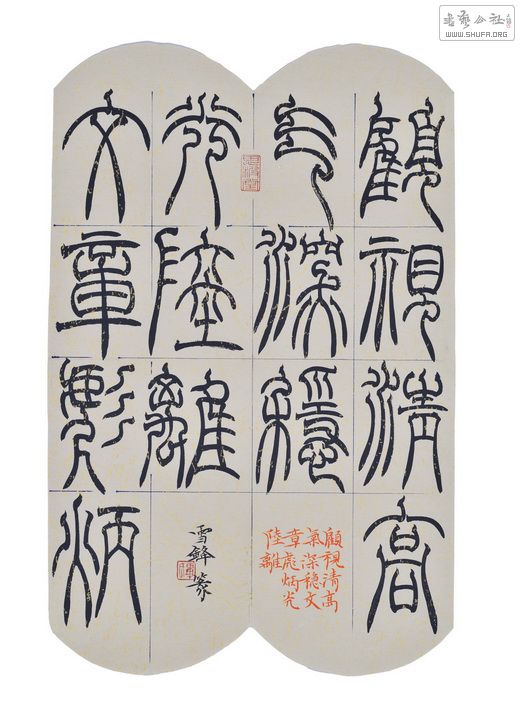 顧視清高
气深穩
文章彪炳
光陸離
顧視清高
氣深穩文
章彪炳光
陸離
雪鋒篆
書藝公社
WWW.SHUFA.ORG